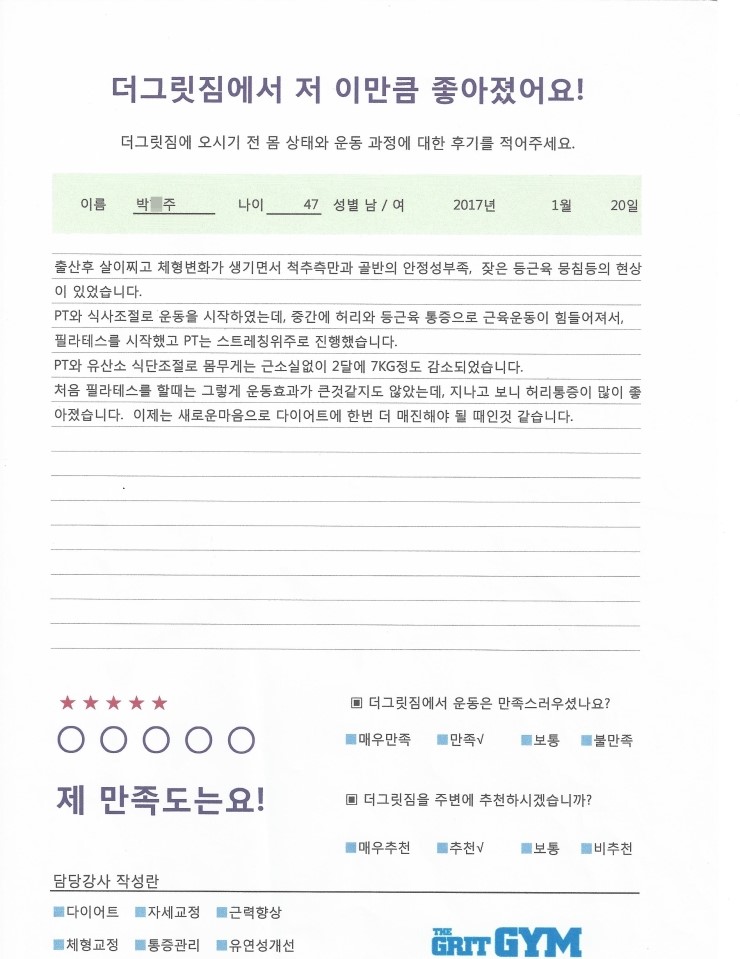 더그릿짐에서 저 이만큼 좋아졌어요!
더그릿짐에 오시기 전 몸 상태와 운동 과정에 대한 후기를 적어주세요.
이름 박 주 나이 47 성별 남 / 여 2017년 1월 20일
출산후 살이찌고 체형변화가 생기면서 척추측만과 골반의 안정성부족, 잦은 등근육 뭉침등의 현상
이 있었습니다.
PT와 식사조절로 운동을 시작하였는데, 중간에 허리와 등근육 통증으로 근육운동이 힘들어져서,
필라테스를 시작했고 PT는 스트레칭위주로 진행했습니다.
PT와 유산소 식단조절로 몸무게는 근소실없이 2달에 7KG정도 감소되었습니다.
처음 필라테스를 할때는 그렇게 운동효과가 큰것같지도 않았는데, 지나고 보니 허리통증이 많이 좋
아졌습니다. 이제는 새로운마음으로 다이어트에 한번 더 매진해야 될 때인것 같습니다.
★★★★★ ▣ 더그릿짐에서 운동은 만족스러우셨나요?
■매우만족 ■만족√ ■보통 ■불만족
제 만족도는요!
▣ 더그릿짐을 주변에 추천하시겠습니까?
■매우추천 ■추천√ ■보통 ■비추천
담당강사 작성란
■다이어트 ■자세교정 ■근력향상
■체형교정 ■통증관리 ■유연성개선
THE GRIT GYM